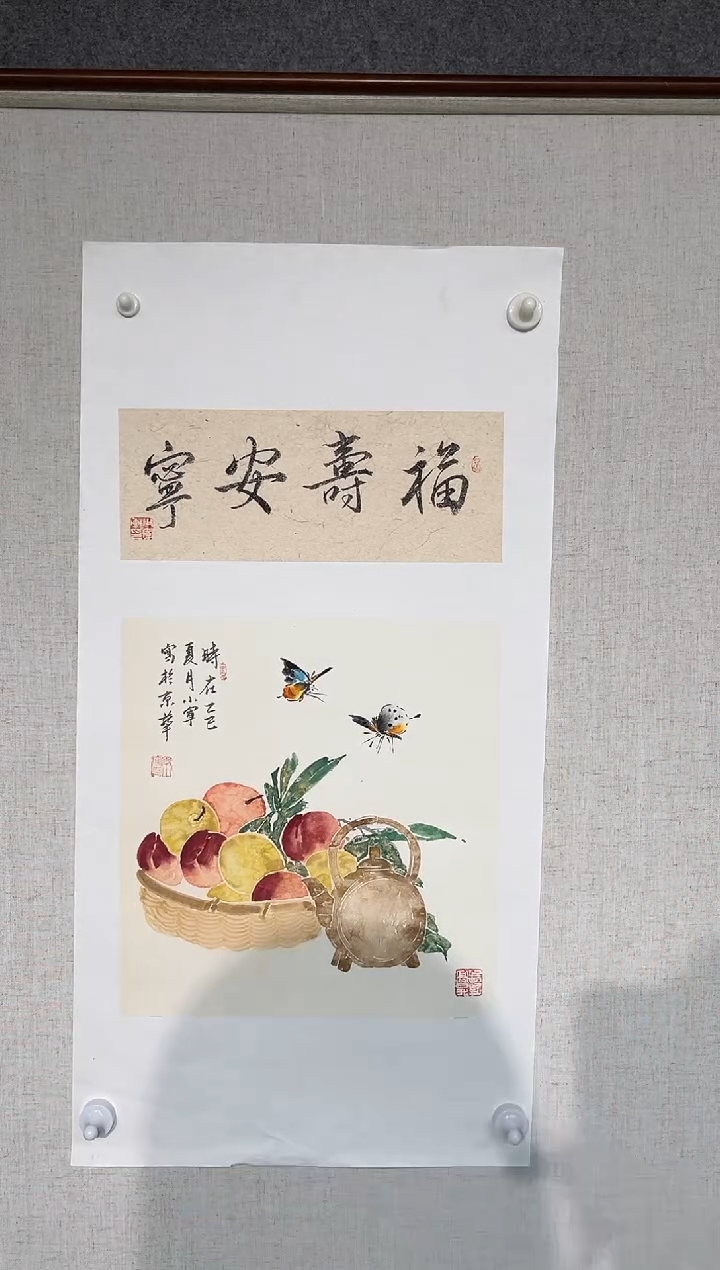 福壽安寧
時在乙巳
夏月小寧
寫於京華